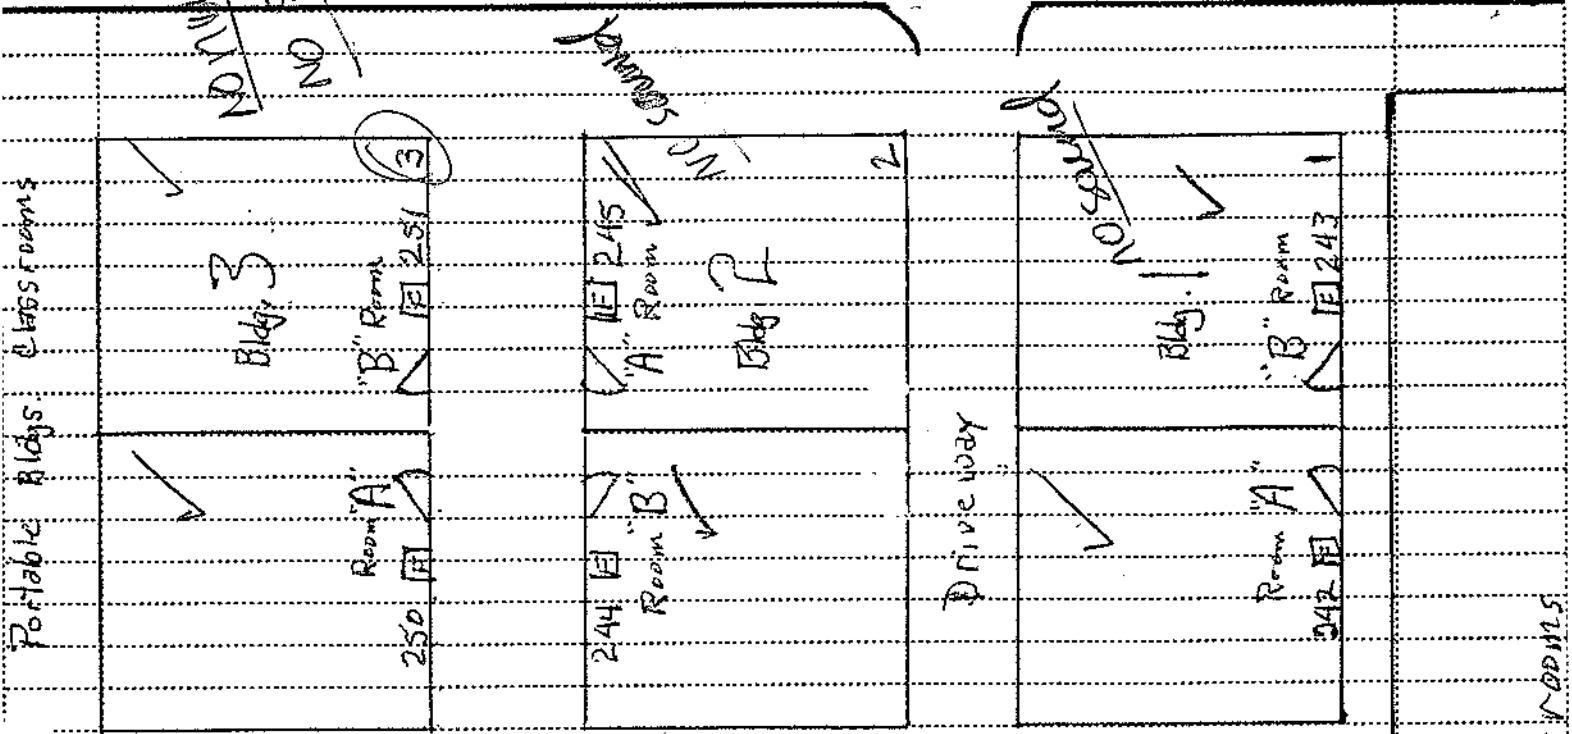 Portable Bldgs. Classrooms
NO
3
Bldg. 3
"B" Room
E 251
Room "A"
250 E
NO sound
2
E 245
"A" Room
Bldg 2
244 E
Room "B"
Driveway
NO sound
1
Bldg. 1
"B" Room
E 243
Room "A"
242 E
rooms